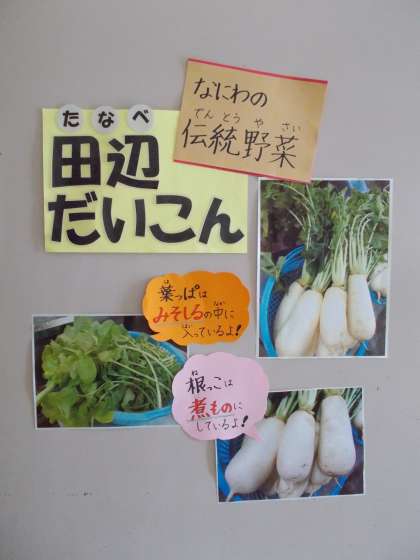 なにわの
でんとうやさい
伝統野菜
たなべ
田辺
だいこん
は
葉っぱは
なか
みそしるの中に
はい
入っているよ!
ね
根っこは
に
煮ものに
しているよ!